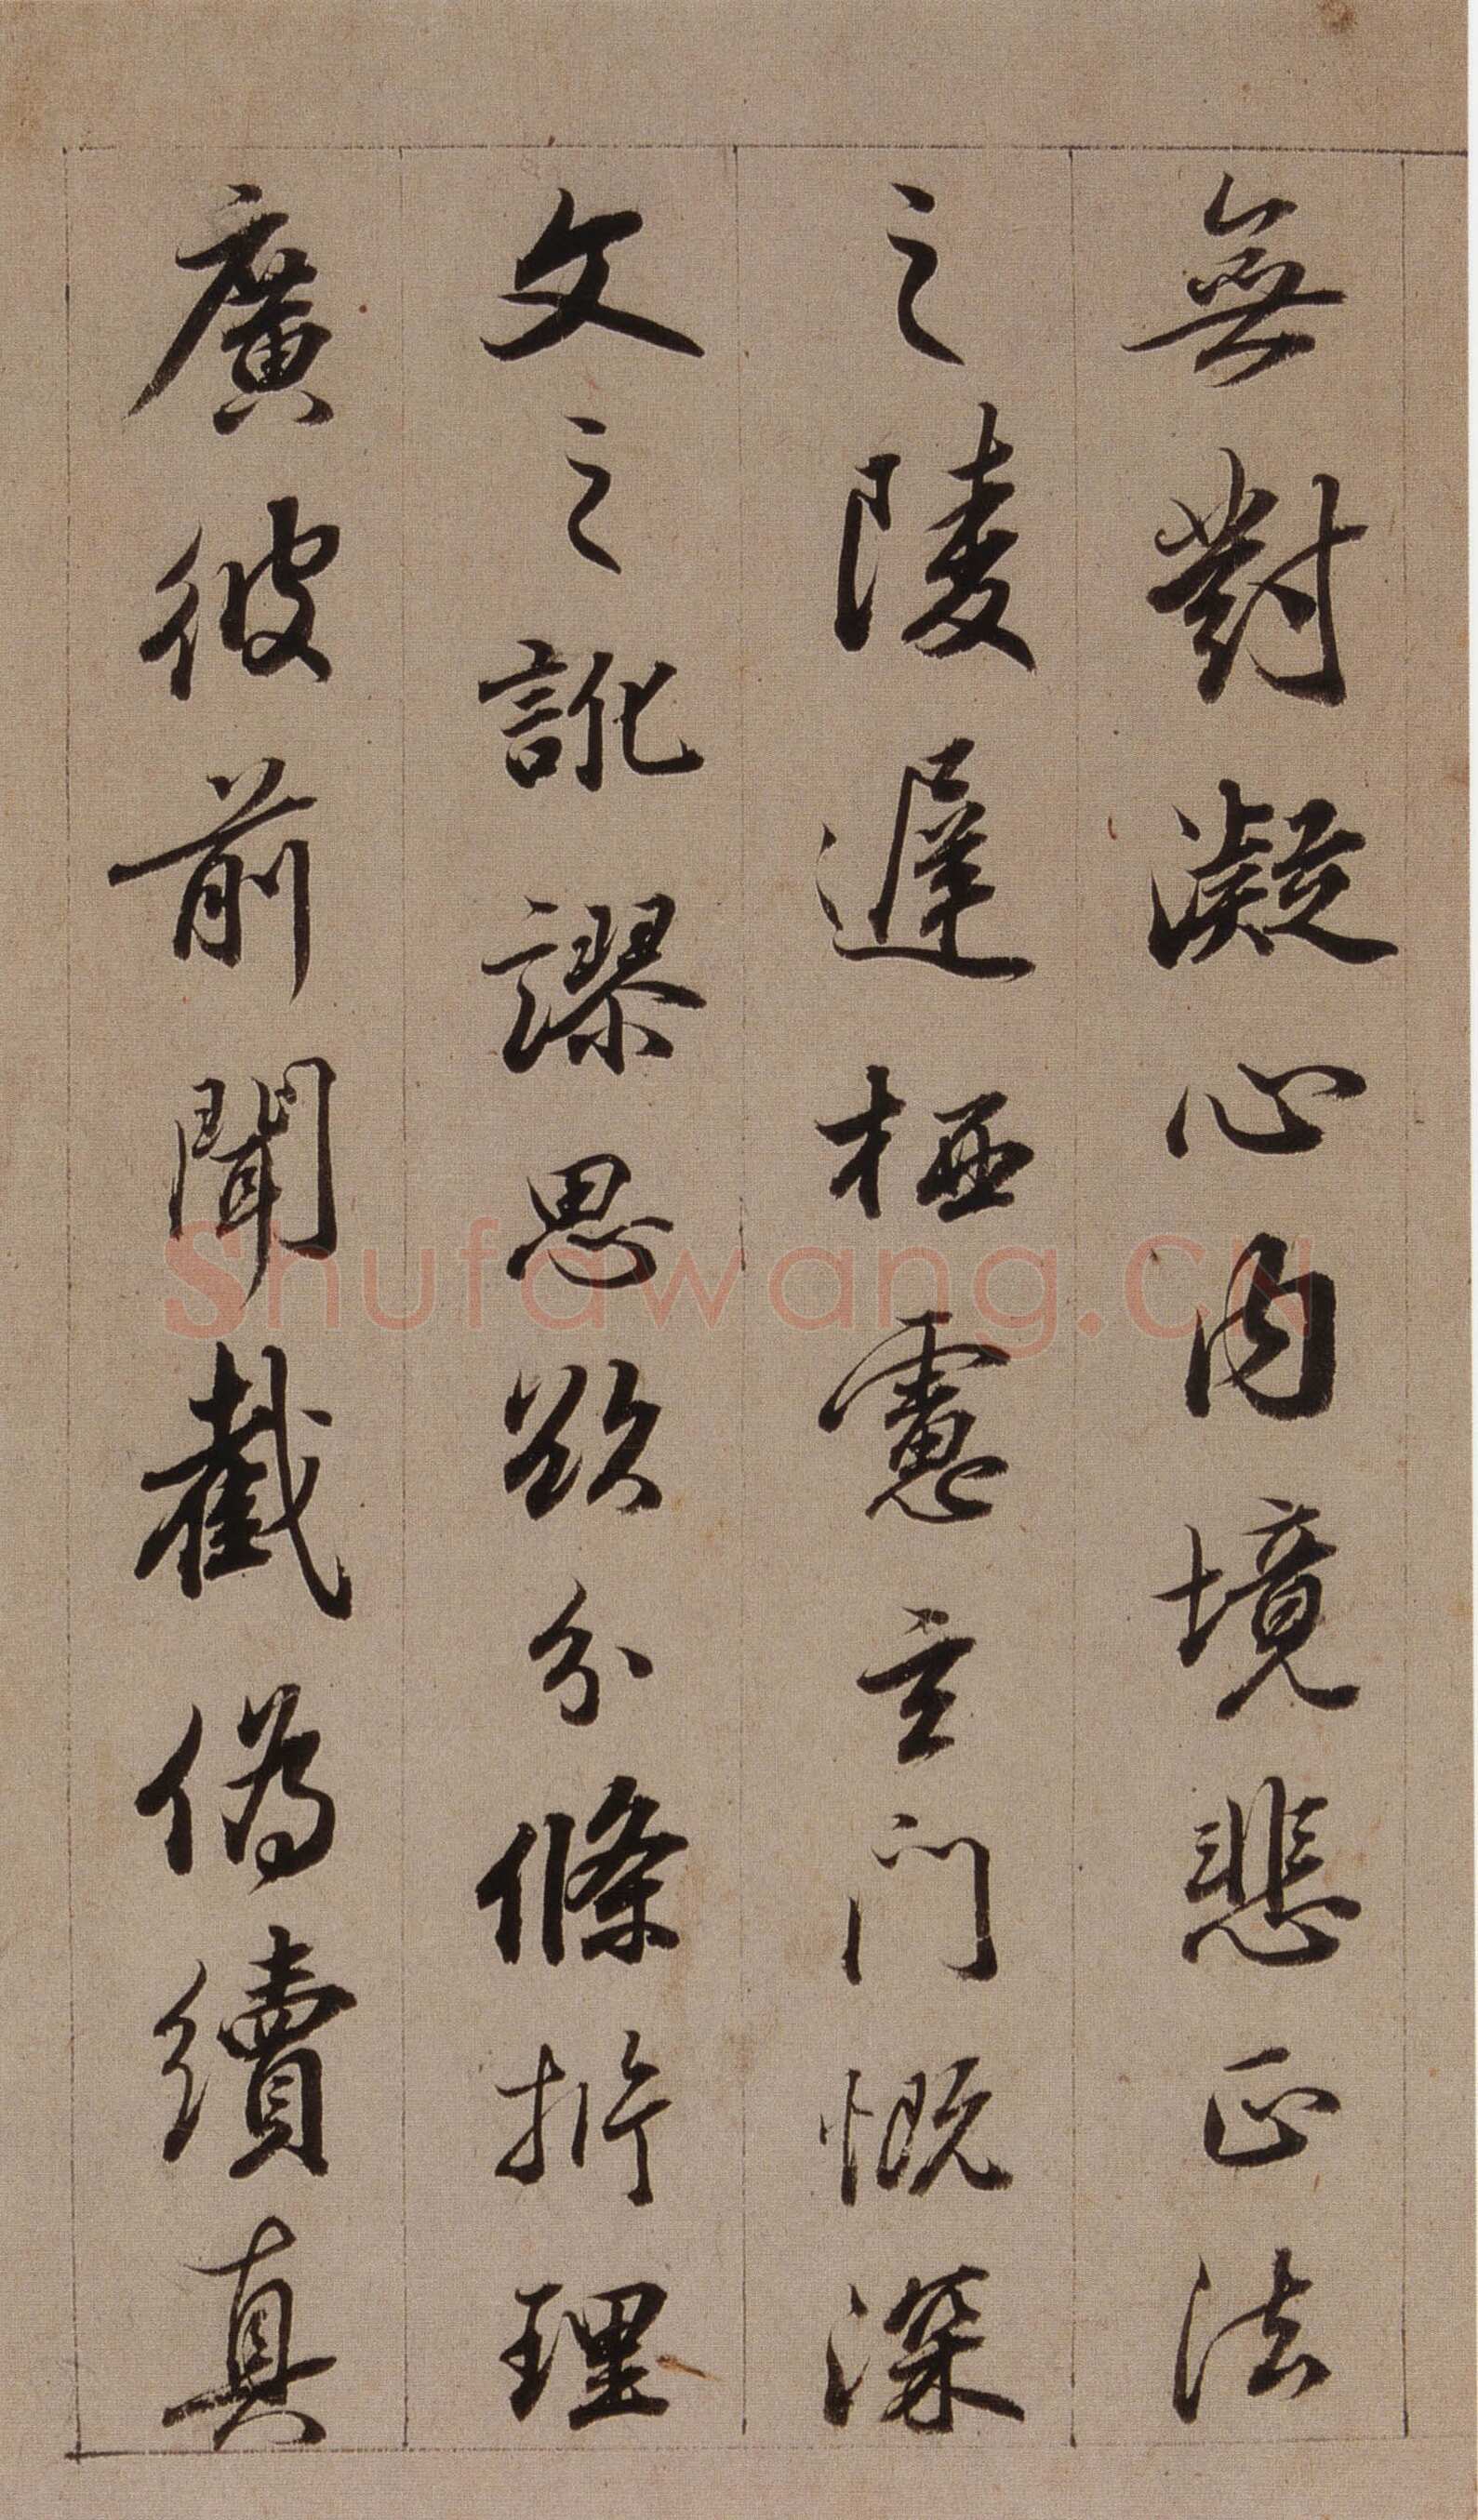 無對凝心内境悲正法
之陵遲栖慮玄門慨深
文之訛謬思欲分條析理
廣彼前聞截偽續真
Shufawang.cn